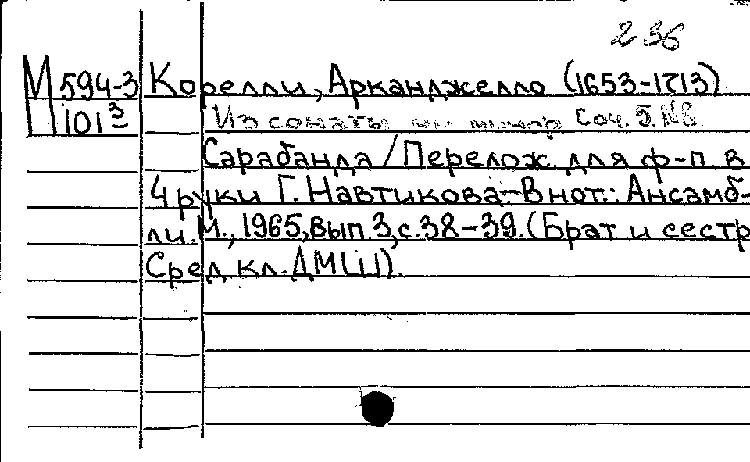 236
М 594-3 Корелли, Арканджелло (1653-1713)
П 101 3 Из сонаты ми минор Соч. 5. №8
Сарабанда / Перелож. для ф-п. в
4 руки Г. Навтикова - В нот.: Ансамб-
ли. М., 1965, вып. 3, с. 38-39. (Брат и сестр
Сред. кл. ДМШ).